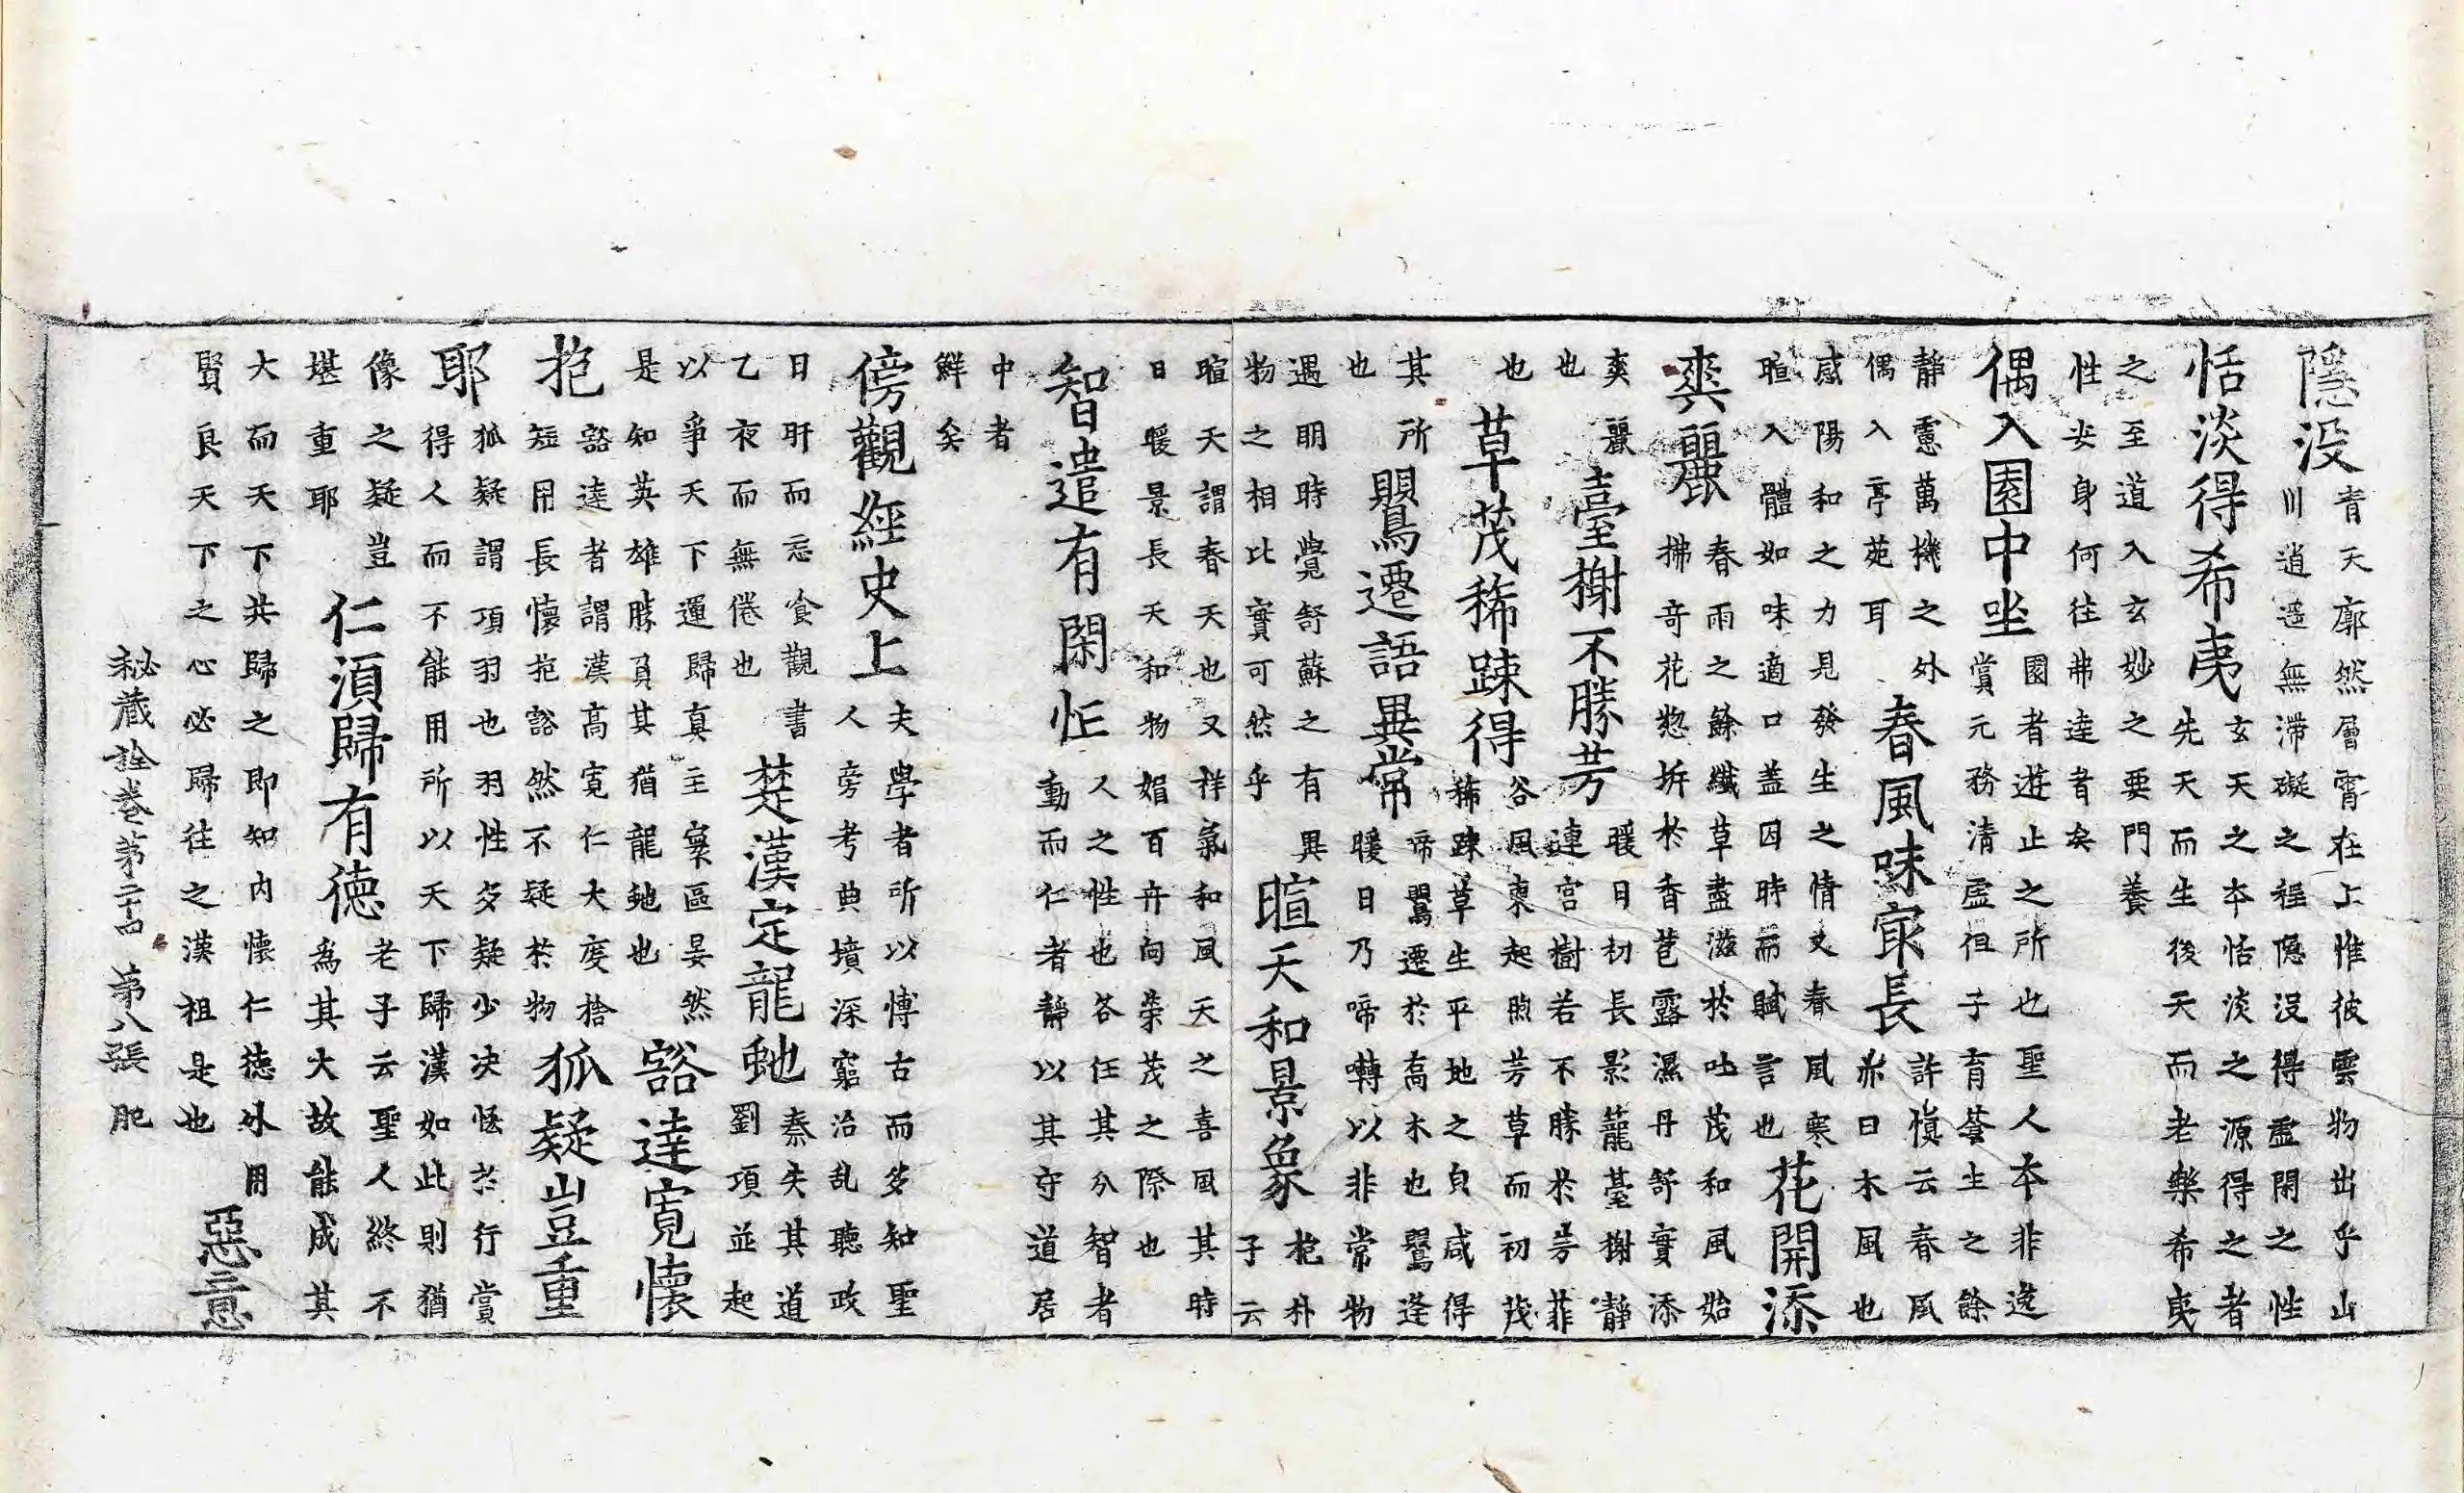 隱没
青天廓然層霄在上惟彼雲物出乎山
川逍遥無滯礙之程隱没得盡閑之性
恬淡得希夷
玄天之本恬淡之源得之者
先天而生後天而老樂希夷
之至道入玄妙之要門養
性安身何往弗逹者矣
偶入園中坐
園者遊止之所也聖人本非逸
賞元務清虚但子育蒼生之餘
静慮萬機之外
偶入亭苑耳
春風味㝡長
許慎云春風
赤曰木風也
感陽和之力見發生之情又春風寒
暄入體如味適口盖因時而賦言也
花開添
爽麗
春雨之餘纖草盡滋於吐茂和風始
拂奇花惣坼於香苞露濕丹舒實添
爽麗
也
臺榭不勝芳
暖日初長影蘢臺榭靜
連宫樹若不勝於芳菲
也
草茂稀踈得
谷風東起煦芳草而初茂
稀踈草生平地之自咸得
其所
也
鸎遷語異常
啼鸎遷於高木也鸎逢
暖日乃啼囀以非常物
遇明時覺舒蘇之有異
物之相比實可然乎
暄天和景象
抱朴
子云
暄天謂春天也又祥氣和風天之喜風其時
日暖景長天和物媚百卉向榮茂之際也
智遣有閑忙
人之性也各任其分智者
動而仁者靜以其守道居
中者
鮮矣
傍觀經史上
夫學者所以博古而多知聖
人旁考典墳深窮治乱聽政
日旰而忘飡觀書
乙夜而無倦也
楚漢定龍虵
秦失其道
劉項並起
以爭天下運歸真主寰區晏然
是知英雄勝負其猶龍虵也
豁逹寛懷
抱
豁逹者謂漢高寛仁大度捨
短用長懷抱豁然不疑於物
狐疑豈重
耶
狐疑謂項羽也羽性多疑少决恡於行賞
得人而不能用所以天下歸漢如此則猶
像之疑豈
堪重耶
仁湏歸有德
老子云聖人終不
為其大故能成其
大而天下共歸之即知内懷仁德外用
賢良天下之心必歸往之漢祖是也
惡意
秘藏詮卷第二十 第八張 肥